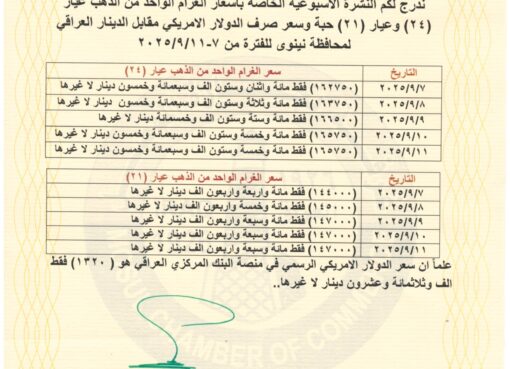 ندرج لكم النشرة الاسبوعية الخاصة باسعار الغرام الواحد من الذهب عيار
(٢٤) وعيار (٢١) حبة وسعر صرف الدولار الامريكي مقابل الدينار العراقي
لمحافظة نينوى للفترة من ٧-٢٠٢٥/٩/١١
التاريخ سعر الغرام الواحد من الذهب عيار (٢٤)
٢٠٢٥/٩/٧ (١٦٢٧٥٠) فقط مائة واثنان وستون الف وسبعمائة وخمسون دينار لا غيرها
٢٠٢٥/٩/٨ (١٦٣٧٥٠) فقط مائة وثلاثة وستون الف وسبعمائة وخمسون دينار لا غيرها
٢٠٢٥/٩/٩ (١٦٦٥٠٠) فقط مائة وستة وستون الف وخمسمائة دينار لا غيرها
٢٠٢٥/٩/١٠ (١٦٥٧٥٠) فقط مائة وخمسة وستون الف وسبعمائة وخمسون دينار لا غيرها
٢٠٢٥/٩/١١ (١٦٥٧٥٠) فقط مائة وخمسة وستون الف وسبعمائة وخمسون دينار لا غيرها
التاريخ سعر الغرام الواحد من الذهب عيار (٢١)
٢٠٢٥/٩/٧ (١٤٤٠٠٠) فقط مائة واربعة واربعون الف دينار لا غيرها
٢٠٢٥/٩/٨ (١٤٥٠٠٠) فقط مائة وخمسة واربعون الف دينار لا غيرها
٢٠٢٥/٩/٩ (١٤٧٠٠٠) فقط مائة وسبعة واربعون الف دينار لا غيرها
٢٠٢٥/٩/١٠ (١٤٧٠٠٠) فقط مائة وسبعة واربعون الف دينار لا غيرها
٢٠٢٥/٩/١١ (١٤٧٠٠٠) فقط مائة وسبعة واربعون الف دينار لا غيرها
علماً ان سعر الدولار الامريكي الرسمي في منصة البنك المركزي العراقي هو (١٣٢٠) فقط
الف وثلاثمائة وعشرون دينار لا غيرها..
CHAMBER OF COMM